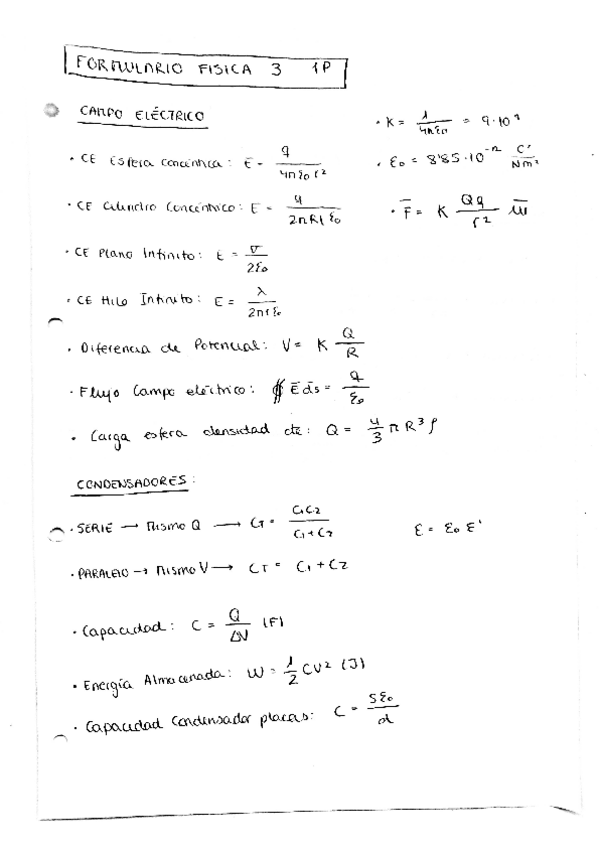 FORMULARIO FISICA 3 1P
CAMPO ELÉCTRICO
· K = 1/4πε₀ = 9·10⁹
· CE Esfera Concéntrica: E = q/4πε₀r²
· ε₀ = 8'85·10⁻¹² C²/Nm²
· CE Cilindro Concéntrico: E = q/2πRLε₀
· F̅ = K Qq/r² u̅
· CE Plano Infinito: E = σ/2ε₀
· CE Hilo Infinito: E = λ/2πrε₀
· Diferencia de Potencial: V = K Q/R
· Flujo Campo eléctrico: ∯ E̅ds̅ = q/ε₀
· Carga esfera densidad cte: Q = 4/3 π R³ρ
CONDENSADORES:
· SERIE → Mismo Q → CT = C₁C₂/C₁+C₂
ε = ε₀ ε'
· PARALELO → Mismo V → CT = C₁ + C₂
· Capacidad: C = Q/ΔV (F)
· Energía Almacenada: W = 1/2 CV² (J)
· Capacidad Condensador placas: C = Sε₀/d